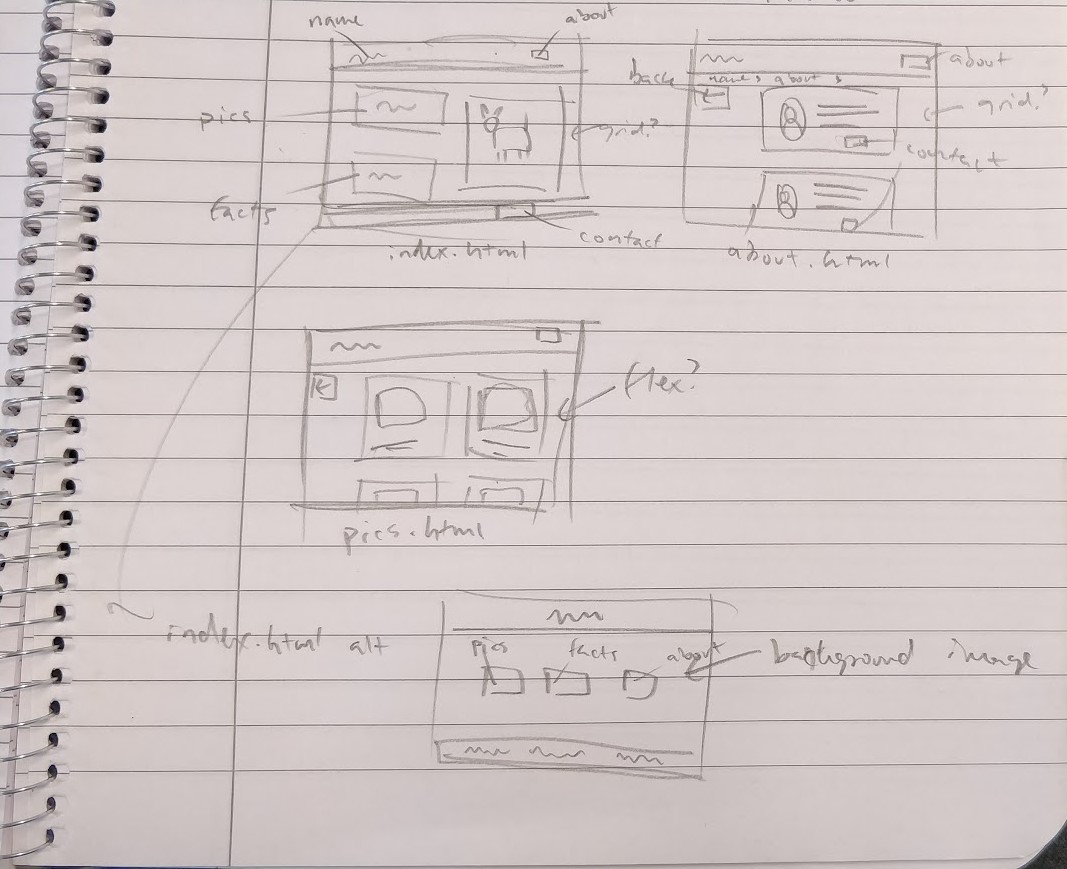 name
about
pics
grid?
facts
contact
index.html
about
back
name, about s
grid?
contact
about.html
flex?
pics.html
index.html alt
pics
facts
about
background image